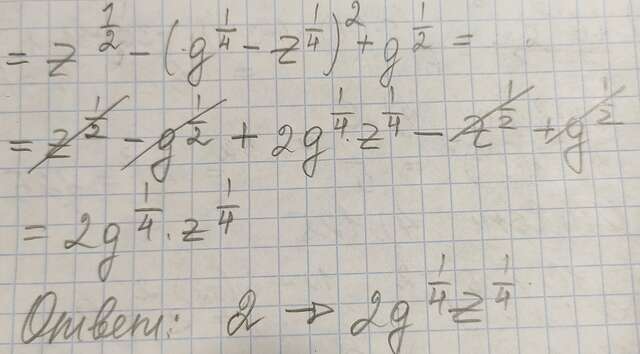 = z^{1/2} - (g^{1/4} - z^{1/4})^2 + g^{1/2} =
= z^{1/2} - g^{1/2} + 2g^{1/4} · z^{1/4} - z^{1/2} + g^{1/2}
= 2g^{1/4} · z^{1/4}
Ответ: 2 → 2g^{1/4} z^{1/4}